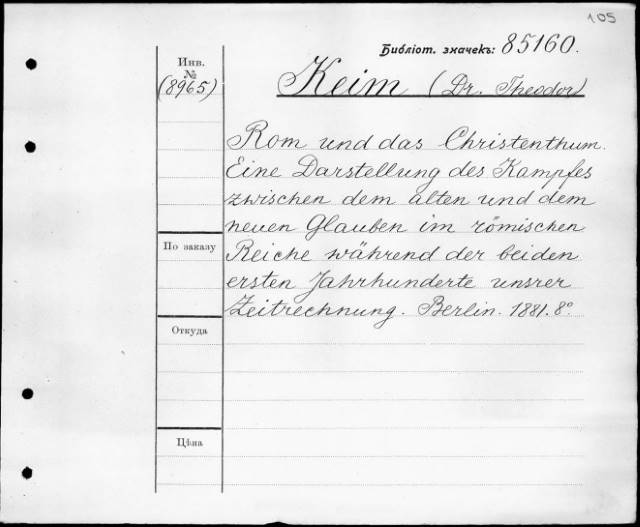 105
Библіот. значекъ: 85160.
Инв.
№
(8965)
Keim (Dr. Theodor)
Rom und das Christenthum.
Eine Darstellung des Kampfes
zwischen dem alten und dem
neuen Glauben im römischen
Reiche während der beiden
ersten Jahrhunderte unsrer
Zeitrechnung. Berlin. 1881. 8º
По заказу
Откуда
Цѣна